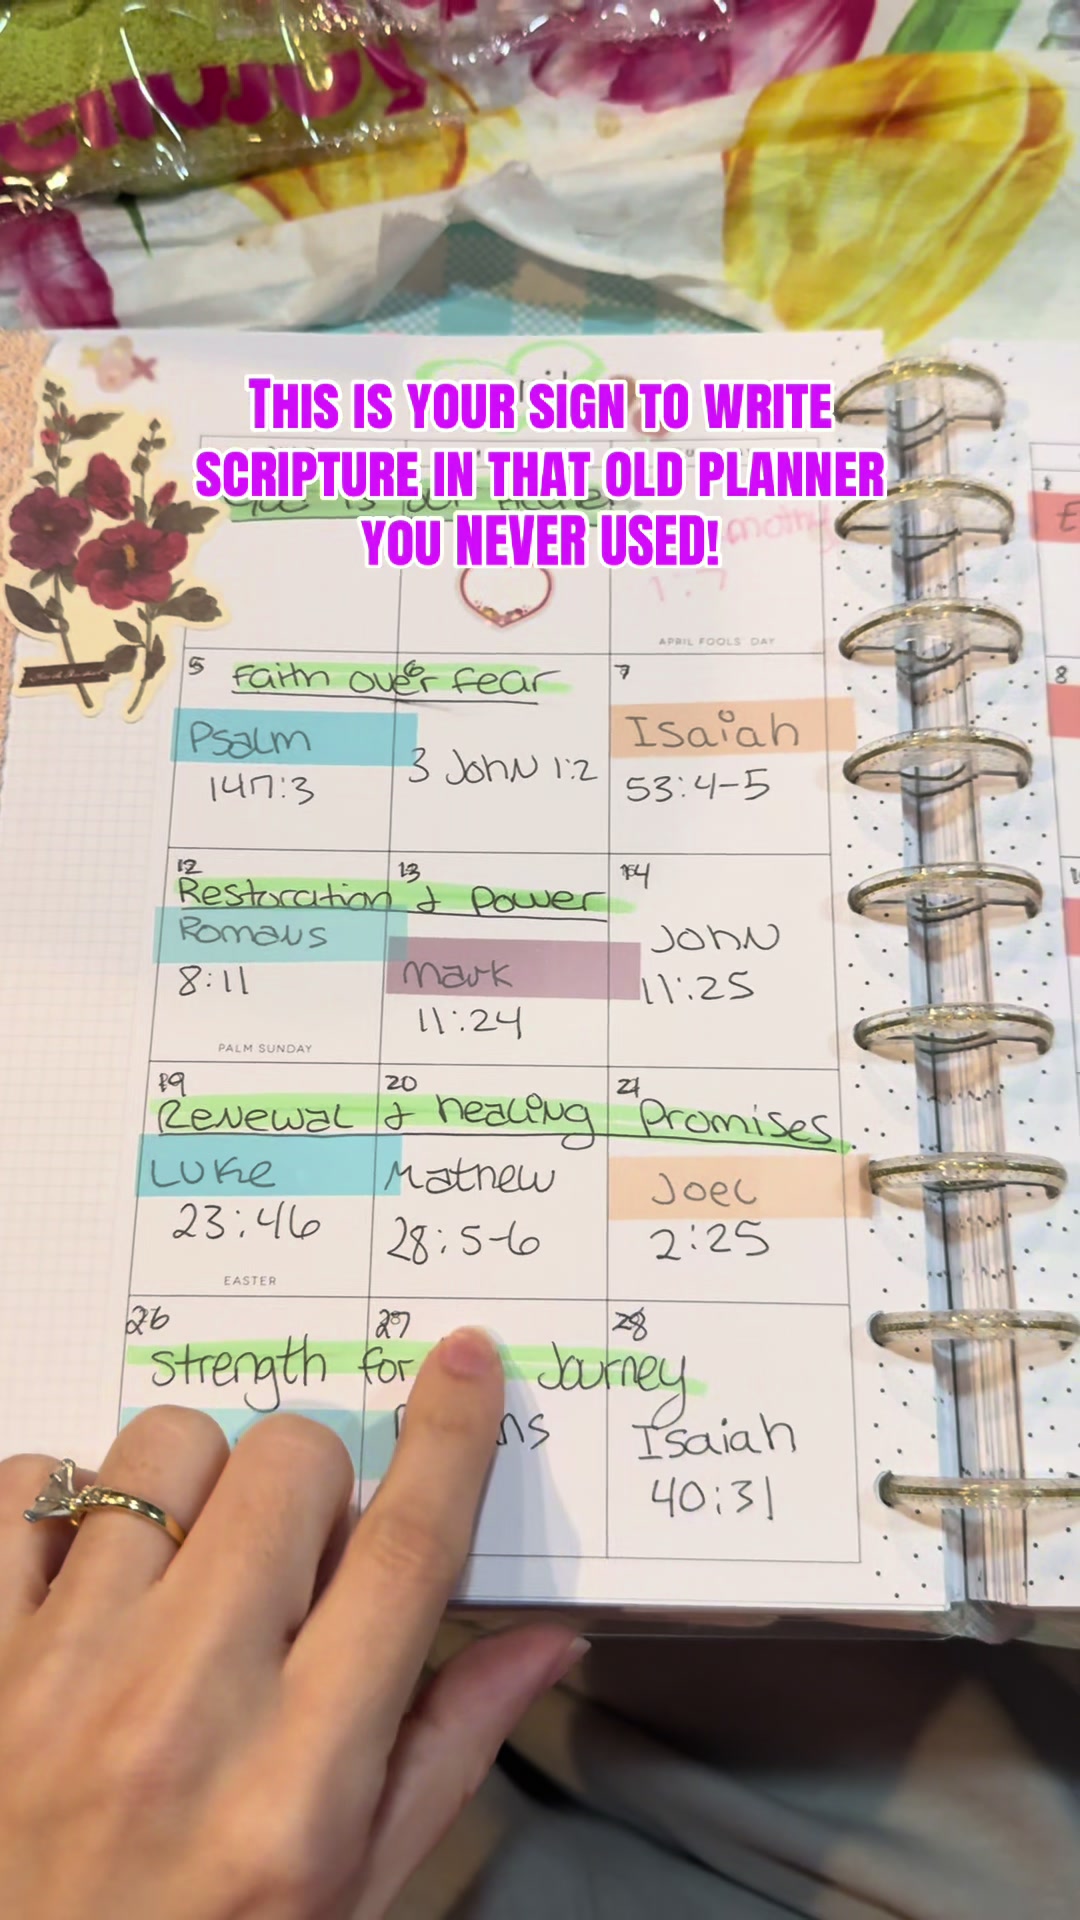 THIS IS YOUR SIGN TO WRITE
SCRIPTURE IN THAT OLD PLANNER
YOU NEVER USED!
1:7
APRIL FOOLS' DAY
5
6
7
8
Faith over fear
Psalm
147:3
3 John 1:2
Isaiah
53:4-5
12
13
14
Restoration & power
Romans
8:11
Mark
11:24
John
11:25
PALM SUNDAY
19
20
21
Renewal & healing Promises
Luke
23:46
Mathew
28:5-6
Joel
2:25
EASTER
26
27
28
Strength for Journey
Isaiah
40:31